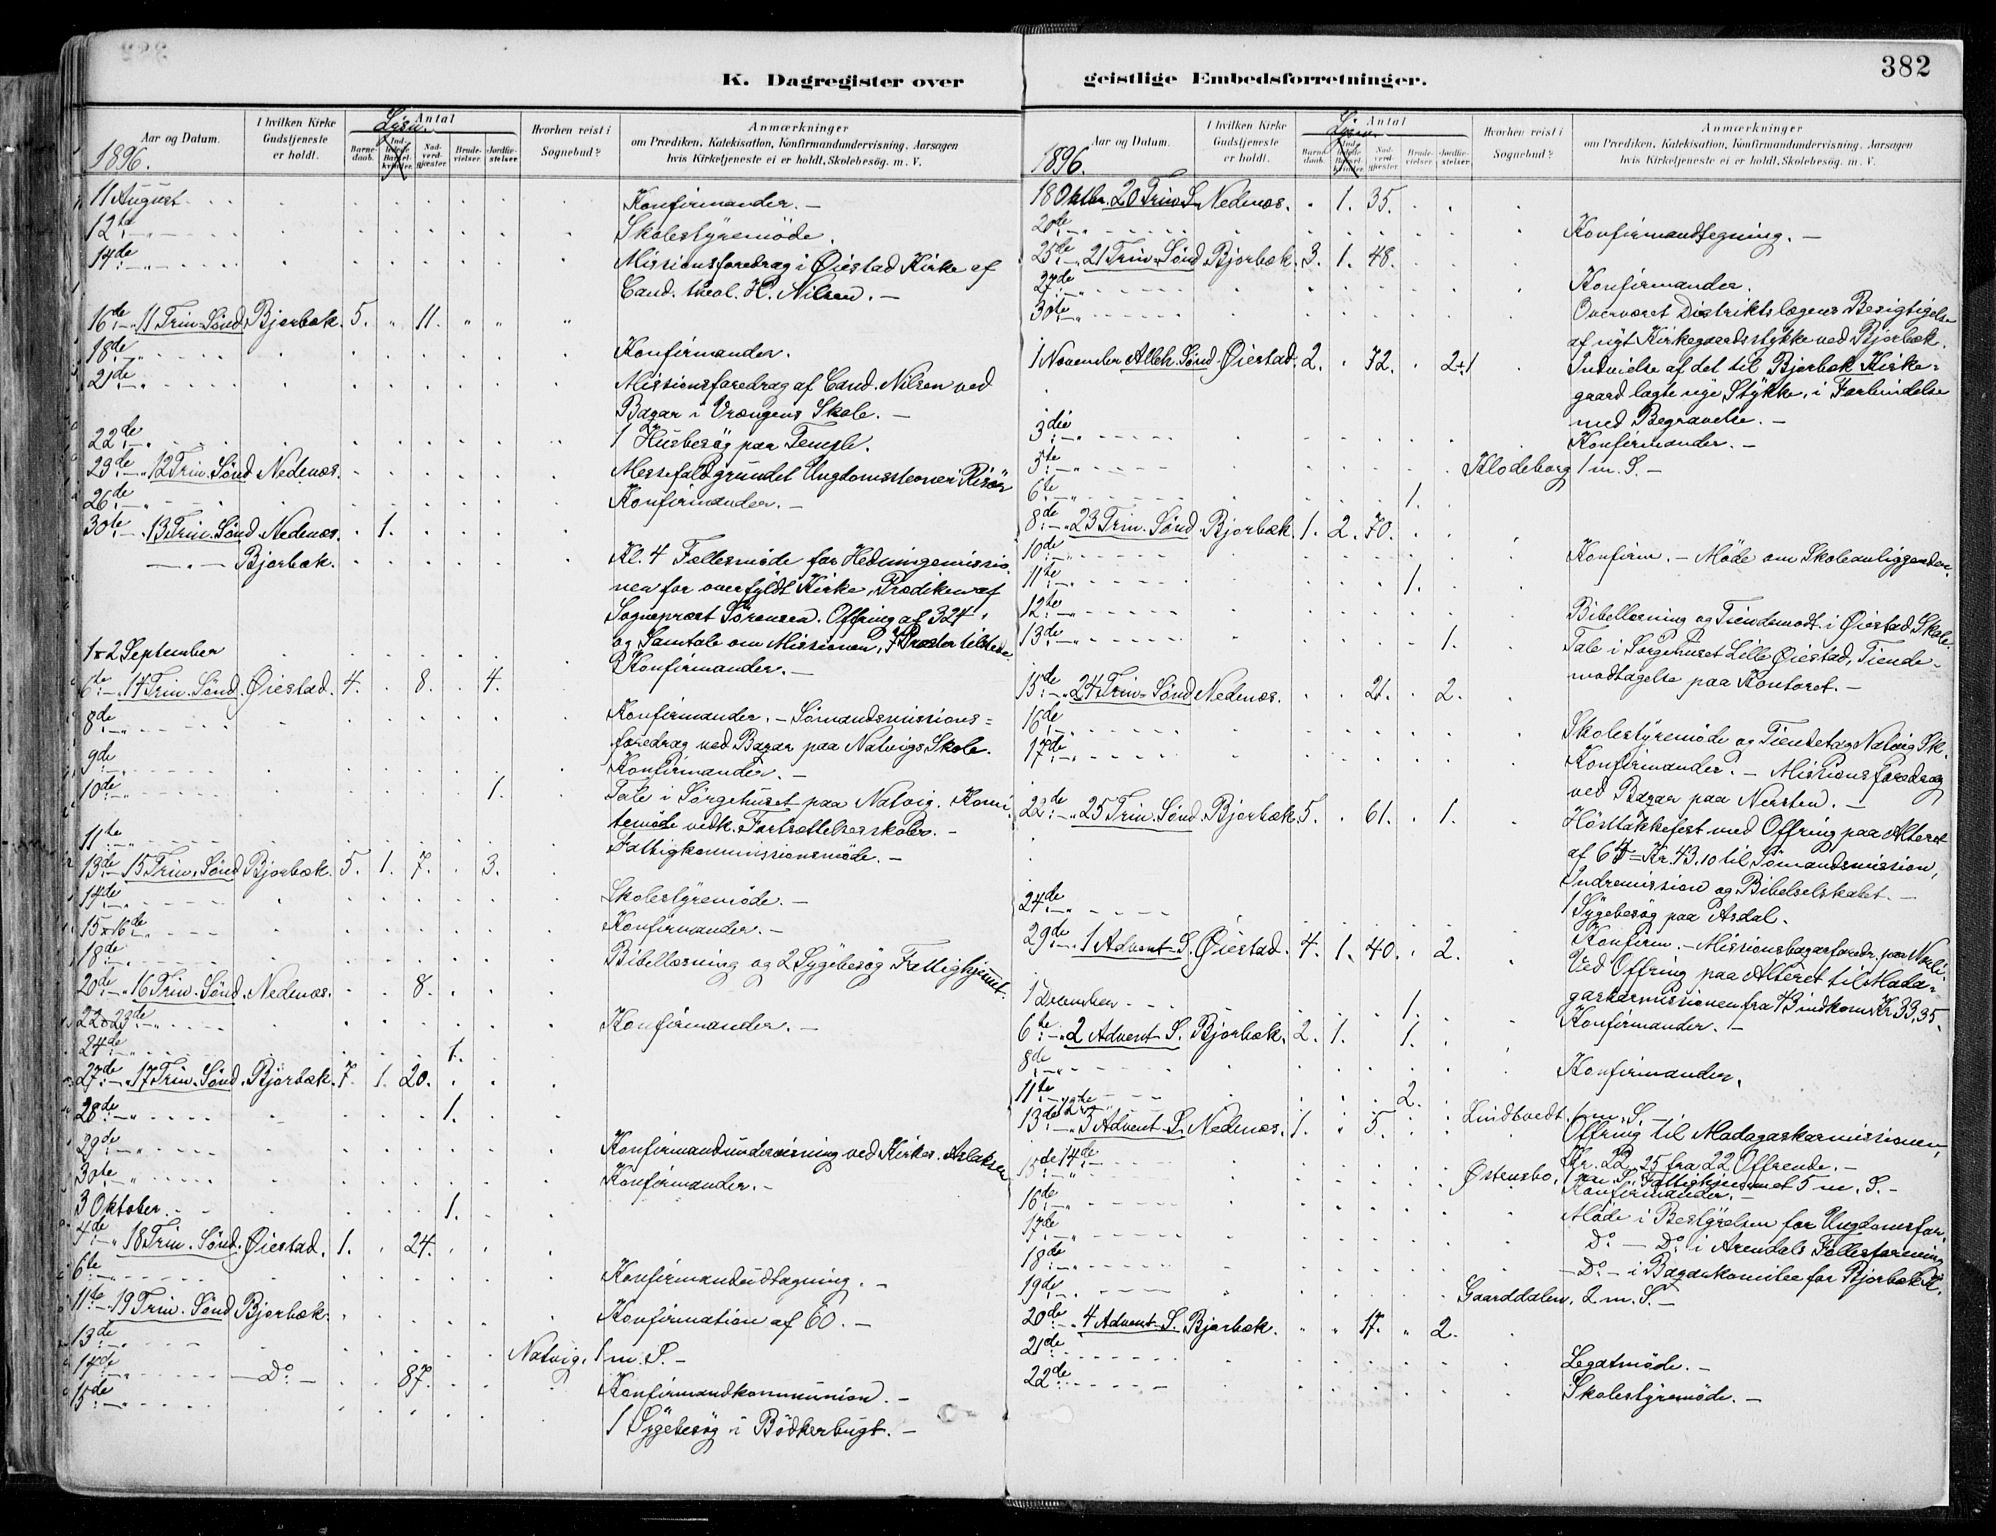 382
K. Dagregister over
geistlige Embedsforretninger.
Aar og Datum.
I hvilken Kirke Gudstjeneste er holdt.
Antal
Lysn.
Barnedaab.
Indledede Barselkvinder
Nadverdgjester
Brudevielser
Jordfæstelser
Hvorhen reist i Sognebud?
Anmærkninger
om Prædiken, Katekisation, Konfirmandundervisning, Aarsagen
hvis Kirketjeneste ei er holdt, Skolebesøg. m. V.
1896.
11 August Konfirmander. -
12te - " - Skolestyremöde.
14de - " - Missionsforedrag i Öiestad Kirke af
Cand. theol. H. Nilsen. -
16de - " 11 Trin. Sönd. Bjorbæk. 5. " 11. " " "
18de - " Konfirmander.
21de - " Missionsforedrag af Cand. Nilsen ved
Bazar i Vrængens Skole. -
22de - " 1 Husbesög paa Temple.
23de - " 12 Trin. Sönd Nedenæs. Messefald grundet Ungdomsstevne i Risör
26de - " Konfirmander. -
30te - 13 Trin. Sönd Nedenæs. 1.
- " - Bjorbæk. Kl. 4 Fællesmöde for Hedningemissio
nen for overfyldt Kirke, Prædiken af
Sogneprest Sörensen. Offring af 324
og Samtale om Missionen, 7 Prester tilstede
1 & 2 September Konfirmander. -
6te - " 14 Trin. Sönd. Öiestad. 4. 8. 4.
8de - " Konfirmander. - Sömandsmissions=
foredrag ved Bazar paa Natvigs Skole.
9de - " Konfirmander. -
10de - " 1. Tale i Sörgehuset paa Natvig. Komi
temöde vedk. Fortsættelsesskolen. -
11te - " Fattigkommissionsmöde. -
13de - 15 Trin. Sönd Bjorbæk. 5. 1. 7. 3.
14de - " Skolestyremöde. -
15 & 16de - " Konfirmander. -
18de - " Bibellæsning og 2 Sygebesög Fattighjemmet.
20de - " 16 Trin. Sönd. Nedenæs. 8.
22 & 23de - " Konfirmander. -
24de - " 1.
27de - " 17 Trin. Sönd. Bjorbæk. 7. 1. 20.
28de - " 1.
29de - " Konfirmandundervisning ved Kirkes. Aslaksen
30te - " Konfirmander. -
3 Oktober 1.
4de - " 18 Trin. Sönd. Öiestad. 1. 24.
6te - " Konfirmandudtagning. -
11te - " 19 Trin. Sönd Bjorbæk. Konfirmation af 60. -
13de - " Natvig. 1 m. S. -
14de - " - Do - 87. Konfirmandkommunion. -
15de - " 1 Sygebesög i Bödkerbugt. -
Aar og Datum.
I hvilken Kirke Gudstjeneste er holdt.
Antal
Lysn.
Barnedaab.
Indledede Barselkvinder
Nadverdgjester
Brudevielser
Jordfæstelser
Hvorhen reist i Sognebud?
Anmærkninger
om Prædiken, Katekisation, Konfirmandundervisning, Aarsagen
hvis Kirketjeneste ei er holdt, Skolebesøg. m. V.
1896.
18 Oktbr. 20 Trin. S. Nedenæs. 1. 35.
20de - " Konfirmandtegning. -
25de - " 21 Trin. Sönd Bjorbæk. 3. 1. 48.
27de - " Konfirmander.
30te - " Overværet Distriktslægens Besigtigelse
af nyt Kirkegaardsstykke ved Bjorbæk.
1 November Alleh. Sönd. Öiestad. 2. 72. 2+1 Indvielse af det til Bjorbæk Kirke=
gaard lagte nye Stykke, i Forbindelse
med Begravelse. -
3die - " Konfirmander. -
5te - " Klodeborg 1 m. S. -
6te - " 1.
8de - " 23 Trin. Sönd. Bjorbæk. 1. 2. 70.
10de - " Konfirm. - Möde om Skoleanliggender.
11te - " 1.
12te - " Bibellæsning og Tiendemodt. i Öiestad Skole.
13de - " 1. Tale i Sörgehuset Lille Öiestad, Tiende-
modtagelse paa Kontoret. -
15de - " 24 Trin. Sönd Nedenæs. 21. 2.
16de - " Skolestyremöde og Tiendetag Natvig Sk.
17de - " Konfirmander. - Missionsforedrag
ved Bazar paa Nersten. -
22de - " 25 Trin. Sönd. Bjorbæk. 5. 61. 1. Hösttakkefest med Offring paa Alteret
af 64 = Kr. 43.10 til Sömandsmission,
Indremission og Bibelselskabet. -
24de - " 1 Sygebesög paa Asdal.
Konfirm. - Missionsbazarforedr. paa
29de - " 1 Advent S. Öiestad. 4. 1. 40. 2. Ved Offring paa Alteret til Mada=
gaskarmissionen fra 43 indkom Kr 33,35.
1 December 1. Konfirmander. -
6te - " 2 Advent S. Bjorbæk. 2. 1. 1.
8de - " Konfirmander.
11te - " 2.
12te Lindtvedt. 1 m. S. -
13de - " 3 Advent S. Nedenæs. 1. 5. Offring til Madagaskarmissionen,
Kr. 22,25 fra 22 Offrende. -
14de Östensbo, 1 m. S. Fattighjemmet 5 m. S. -
15de Konfirmander. -
16de - " Möde i Bestyrelsen for Ungdomsfor.
17de - " Do - Do i Arendals Fællesforening
18de - " - Do - i Bazarkomitee for Bjorbæk K.
19de - " Gaarddalen, 2 m. S. -
20de - " 4 Advent S. Bjorbæk. 17. 2.
21de - " Legatmöde. -
22de - Skolestyremöde. -